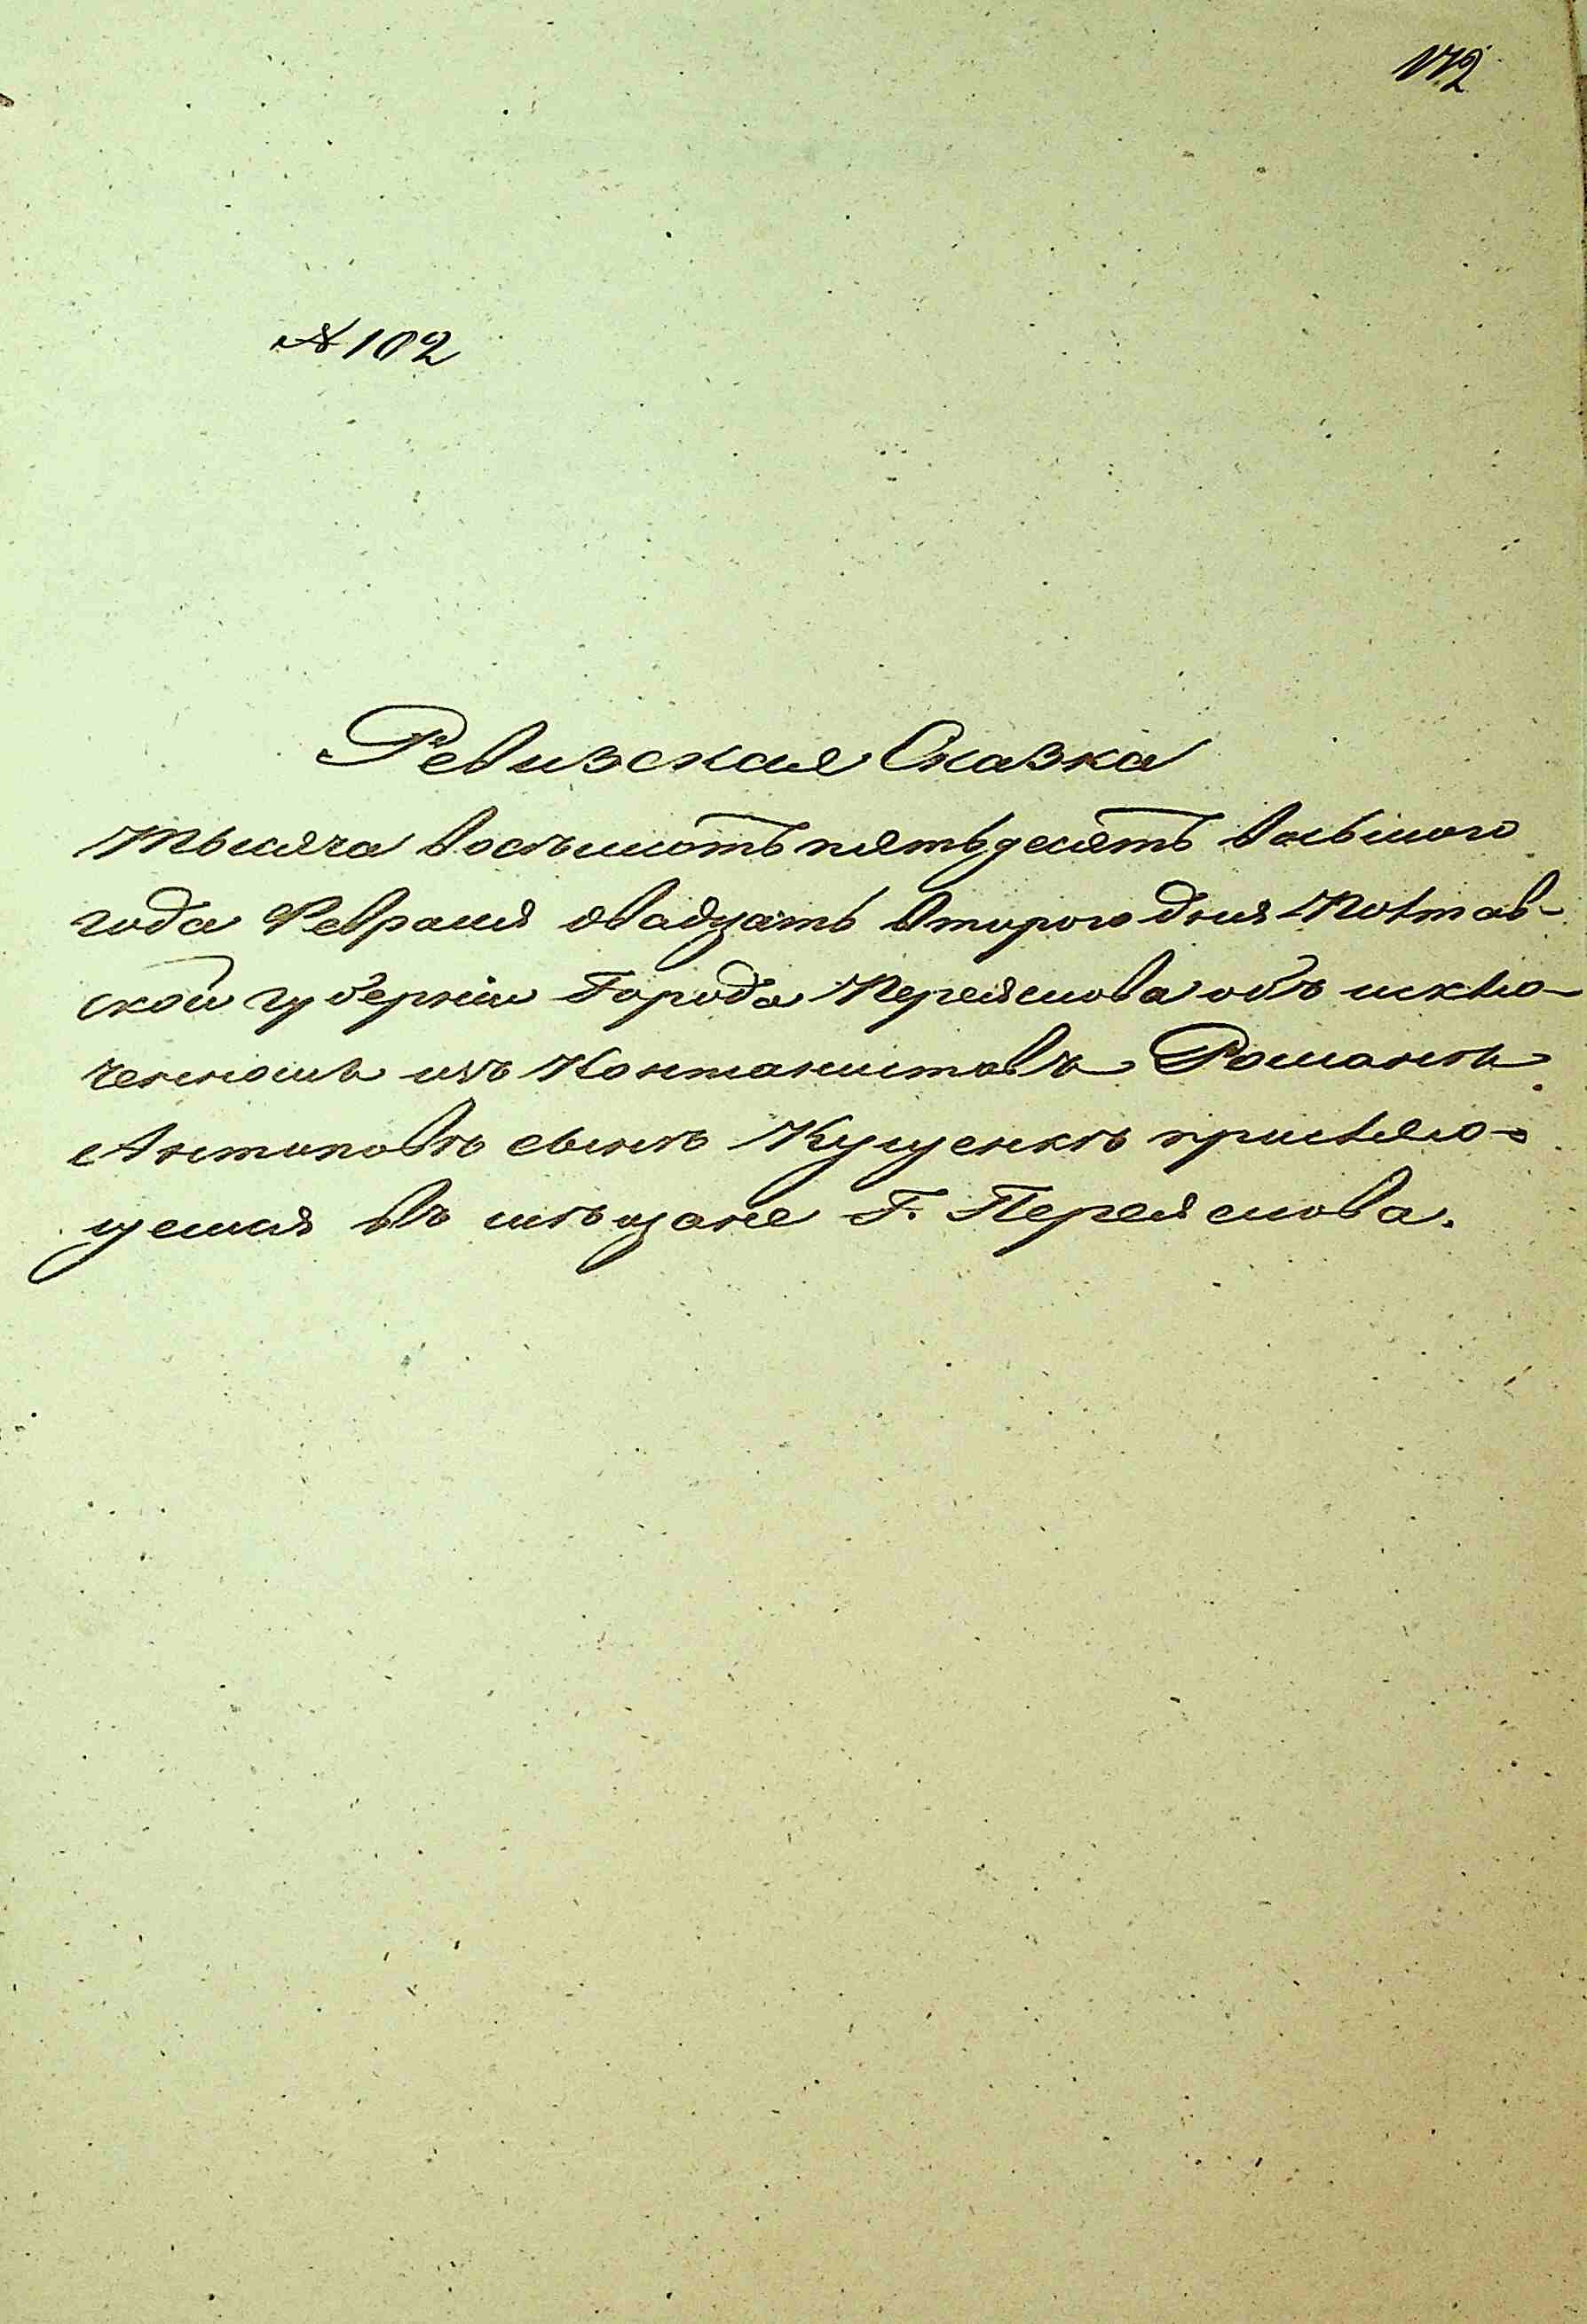 172
№ 102
Ревизская Сказка
Тысяча восемьсотъ пятьдесятъ восьмого
года Февраля двадцать второго дня Полтав-
ской губерніи Города Переяслова объ исклю-
ченномъ изъ Кантонистовъ Романѣ
Антиповѣ сынѣ Куценкѣ причисляю-
щемся въ мѣщане Г. Переяслова.